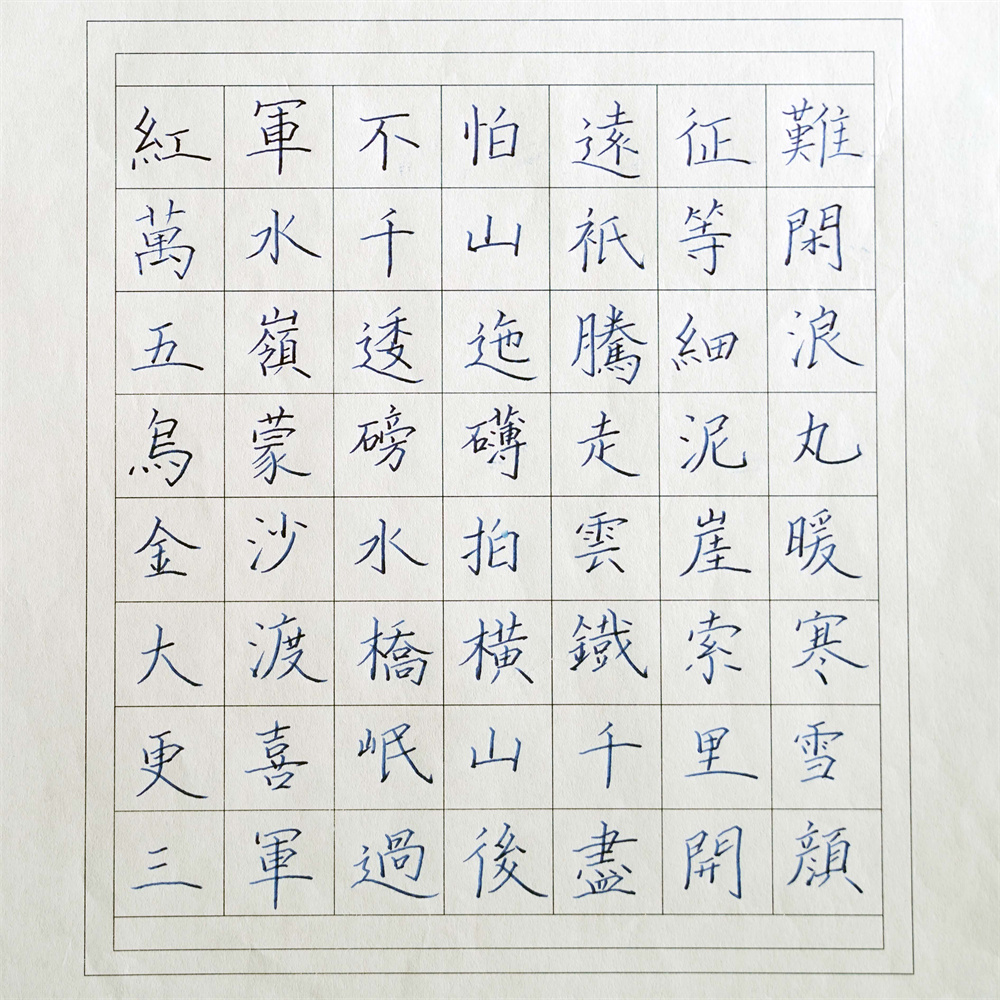 紅軍不怕遠征難
萬水千山祇等閑
五嶺逶迤騰細浪
烏蒙磅礴走泥丸
金沙水拍雲崖暖
大渡橋橫鐵索寒
更喜岷山千里雪
三軍過後盡開顔